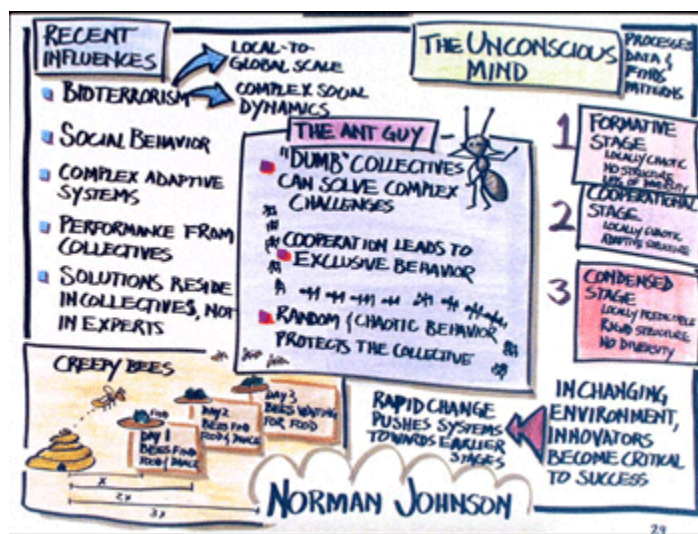 RECENT
INFLUENCES
BIOTERRORISM
LOCAL-TO-
GLOBAL SCALE
COMPLEX SOCIAL
DYNAMICS
SOCIAL BEHAVIOR
COMPLEX ADAPTIVE
SYSTEMS
PERFORMANCE FROM
COLLECTIVES
SOLUTIONS RESIDE
IN COLLECTIVES, NOT
IN EXPERTS
THE UNCONSCIOUS
MIND
PROCESSES
DATA &
FINDS
PATTERNS
THE ANT GUY
"DUMB" COLLECTIVES
CAN SOLVE COMPLEX
CHALLENGES
COOPERATION LEADS TO
EXCLUSIVE BEHAVIOR
RANDOM & CHAOTIC BEHAVIOR
PROTECTS THE COLLECTIVE
1
FORMATIVE
STAGE
LOCALLY CHAOTIC
NO STRUCTURE
LOTS OF DIVERSITY
2
COOPERATIONAL
STAGE
LOCALLY CHAOTIC
ADAPTIVE STRUCTURE
3
CONDENSED
STAGE
LOCALLY PREDICTABLE
RIGID STRUCTURE
NO DIVERSITY
CREEPY BEES
FOOD
DAY 1
BEES FIND
FOOD & DANCE
DAY 2
BEES FIND
FOOD & DANCE
DAY 3
BEES WAITING
FOR FOOD
X
2X
3X
RAPID CHANGE
PUSHES SYSTEMS
TOWARDS EARLIER
STAGES
IN CHANGING
ENVIRONMENT,
INNOVATORS
BECOME CRITICAL
TO SUCCESS
NORMAN JOHNSON
29